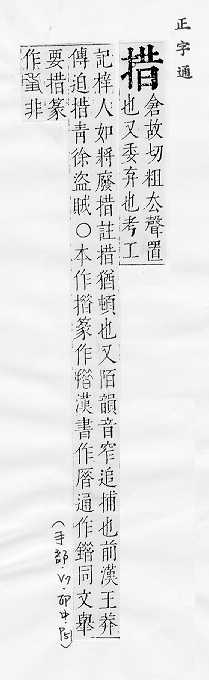 正字通
措
倉故切粗厺聲置
也又委弃也考工
記梓人如將廢措註措猶頓也又陌韻音窄追捕也前漢王莽
傳追措青徐盜賊○本作篆作漢書作厝通作錯同文舉
要措篆
作非
(手部